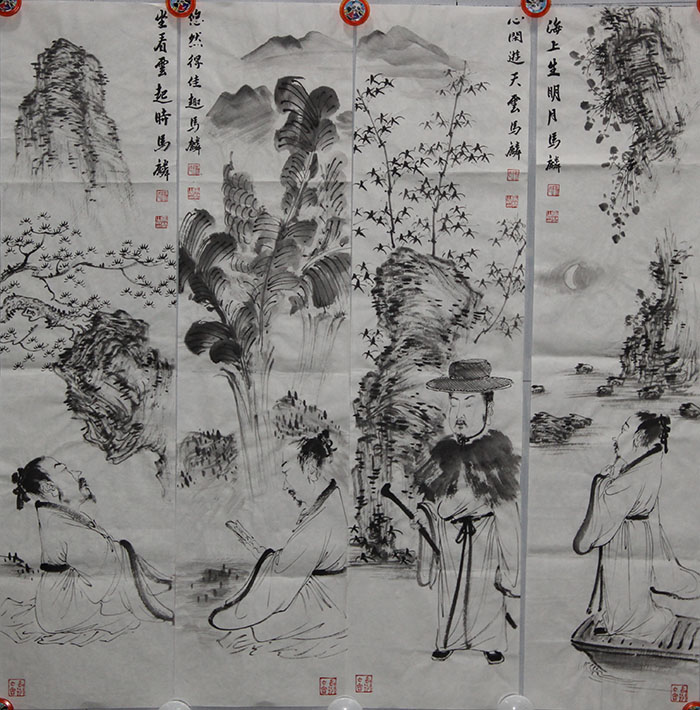 海上生明月馬麟
心閑遊天雲馬麟
悠然得佳趣馬麟
坐看雲起時馬麟